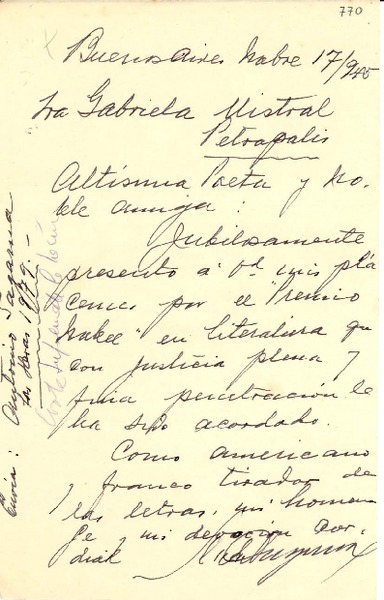 770
Buenos Aires Nobre 17/945
Sra Gabriela Mistral
Petropolis
Altísima Poeta y No-
ble amiga:
Jubilosamente
presento a Vd. mis plá
cemes por el "Premio
Nobel" en literatura que
con justicia plena y
fina penetración le
ha sido acordado.
Como americano
y franco tirador de
las letras, mi homena
je y mi devoción cor-
dial
Envía: Antonio Sagarna
Las Heras 1979
Corte Suprema de